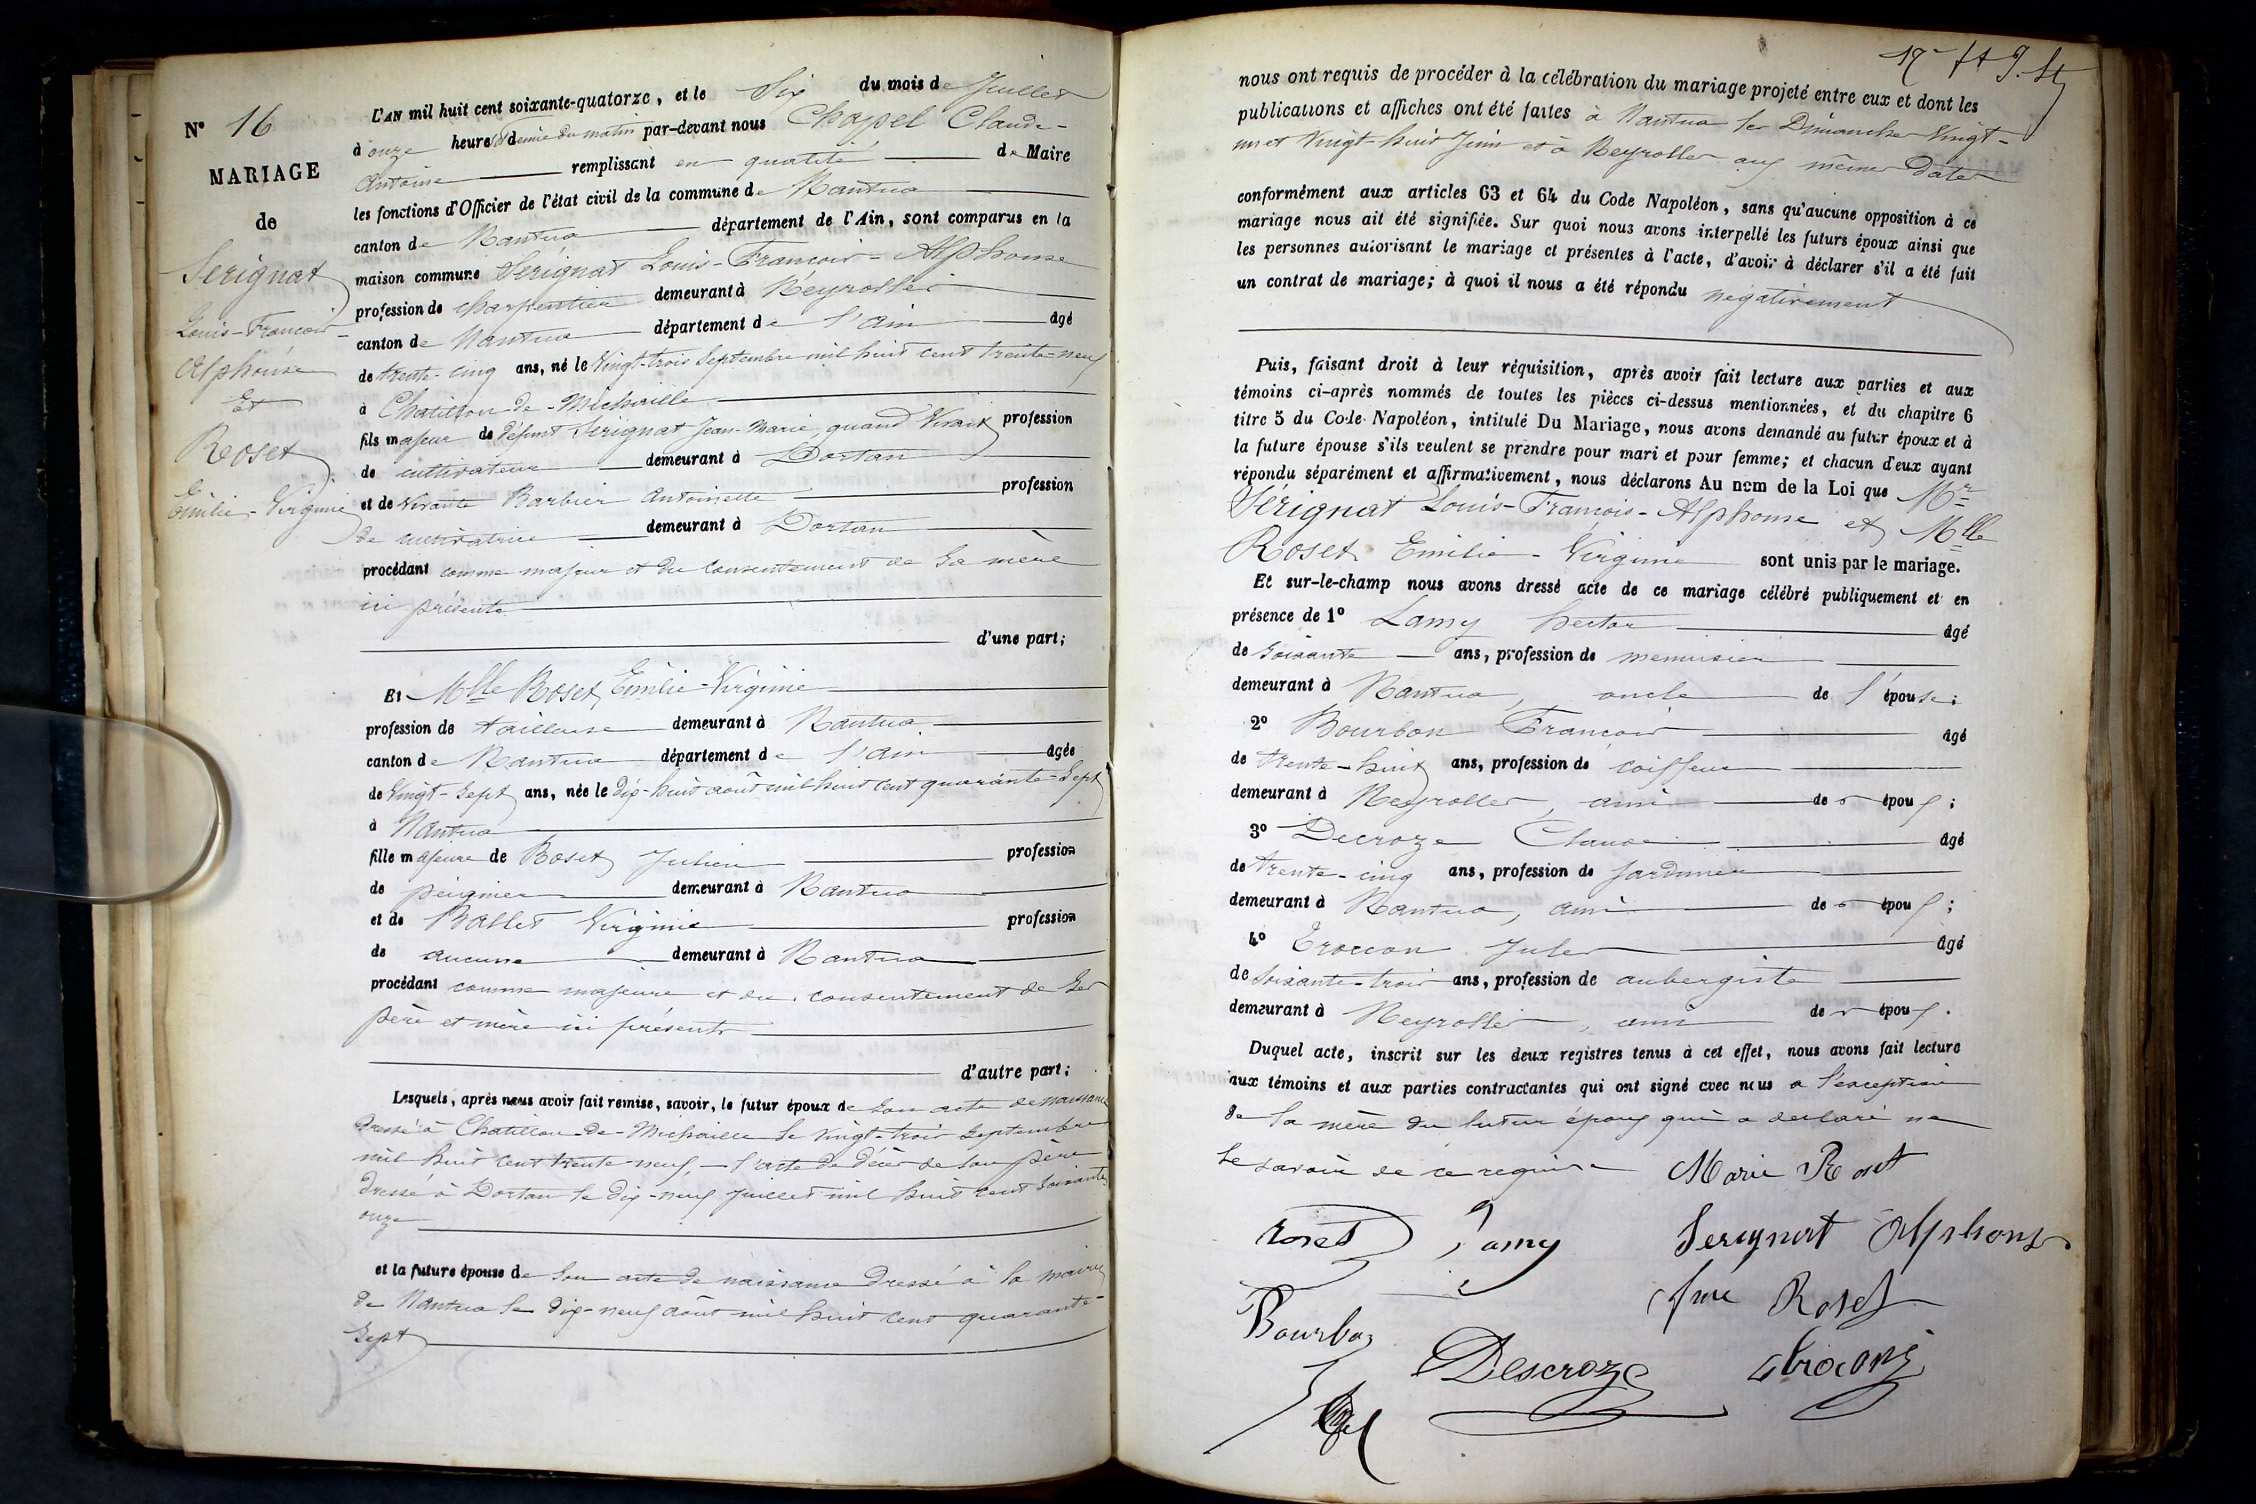 N° 16
MARIAGE
de
Serignat
Louis-François-
Alphonse
Et
Roset
Emilie-Virginie
L'AN mil huit cent soixante-quatorze, et le Six du mois de Juillet
à onze heures & demie du matin par-devant nous Chapel Claude-
Antoine remplissant en qualité de Maire
les fonctions d'Officier de l'état civil de la commune de Nantua
canton de Nantua département de l'Ain, sont comparus en la
maison commune Serignat Louis-François-Alphonse
profession de charpentier demeurant à Neyrolles
canton de Nantua département de l'Ain âgé
de trente-cinq ans, né le Vingt-trois Septembre mil huit cent trente-neuf
à Chatillon-de-Michaille
fils majeur de défunt Serignat Jean-Marie, quand Vivait profession
de cultivateur demeurant à Dortan
et de Vivante Barbier Antoinette profession
de cultivatrice demeurant à Dortan
procédant comme majeur et du consentement de Sa mère
ici présente
d'une part;
Et Mlle Roset Emilie-Virginie
profession de tailleuse demeurant à Nantua
canton de Nantua département de l'Ain âgée
de Vingt-Sept ans, née le dix-huit août mil huit cent quarante-Sept
à Nantua
fille majeure de Roset Julien profession
de peignier demeurant à Nantua
et de Ballet Virginie profession
de aucune demeurant à Nantua
procédant comme majeure et du consentement de Ses
père et mère ici présents
d'autre part;
Lesquels, après nous avoir fait remise, savoir, le futur époux de Son acte de naissance
dressé à Chatillon-de-Michaille le Vingt-trois Septembre
mil huit cent trente-neuf, - l'acte de décès de Son père
dressé à Dortan le dix-neuf Juillet mil huit cent Soixante
onze
et la future épouse de Son acte de naissance dressé à la mairie
de Nantua le dix-neuf août mil huit cent quarante-
Sept
nous ont requis de procéder à la célébration du mariage projeté entre eux et dont les
publications et affiches ont été faites à Nantua les Dimanches Vingt-
un et Vingt-huit Juin et à Neyrolles aux mêmes dates
conformément aux articles 63 et 64 du Code Napoléon, sans qu'aucune opposition à ce
mariage nous ait été signifiée. Sur quoi nous avons interpellé les futurs époux ainsi que
les personnes autorisant le mariage et présentes à l'acte, d'avoir à déclarer s'il a été fait
un contrat de mariage; à quoi il nous a été répondu négativement
Puis, faisant droit à leur réquisition, après avoir fait lecture aux parties et aux
témoins ci-après nommés de toutes les pièces ci-dessus mentionnées, et du chapitre 6
titre 5 du Code Napoléon, intitulé Du Mariage, nous avons demandé au futur époux et à
la future épouse s'ils veulent se prendre pour mari et pour femme; et chacun d'eux ayant
répondu séparément et affirmativement, nous déclarons Au nom de la Loi que Mr
Sérignat Louis-François-Alphonse et Mlle
Roset Emilie-Virginie sont unis par le mariage.
Et sur-le-champ nous avons dressé acte de ce mariage célébré publiquement et en
présence de 1° Lamy hector âgé
de Soixante ans, profession de menuisier
demeurant à Nantua, oncle de l'épouse;
2° Bourbon François âgé
de trente-huit ans, profession de coiffeur
demeurant à Neyrolles, ami des époux;
3° Decroze Claude âgé
de trente-cinq ans, profession de jardinier
demeurant à Nantua, ami des époux;
4° Troccon Jules âgé
de Soixante-trois ans, profession de aubergiste
demeurant à Neyrolles, ami des époux.
Duquel acte, inscrit sur les deux registres tenus à cet effet, nous avons fait lecture
aux témoins et aux parties contractantes qui ont signé avec nous à l'exception
de la mère du futur époux qui a déclaré ne
le savoir de ce requise Marie Roset
roset Lamy Serignat Alphonse
fme Roset
Bourbon Descroze troccon